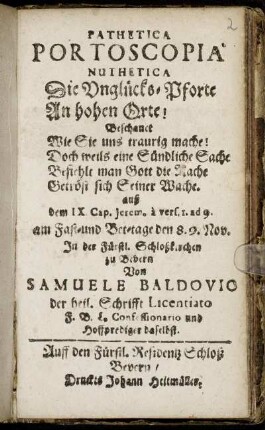 2
PATHETICA
PORTOSCOPIA
NUTHETICA
Die Vnglücks-Pforte
An hohen Orte!
Beschauet
Wie Sie uns traurig mache!
Doch weils eine Sündliche Sache
Befiehlt man Gott die Rache
Getröst sich Seiner Wache.
auß
dem IX Cap. Jerem. à vers. 1. ad 9.
am Fast-und Bet-tage den 8. 9. Nov.
In der Fürstl. Schloßkirchen
zu Bevern
Von
SAMUELE BALDOVIO
der heil. Schrifft Licentiato
F. B. L. Confessionario und
Hoffprediger daselbst.
Auff den Fürstl. Residentz Schloß
Bevern/
Druckts Johann Heitmüller.